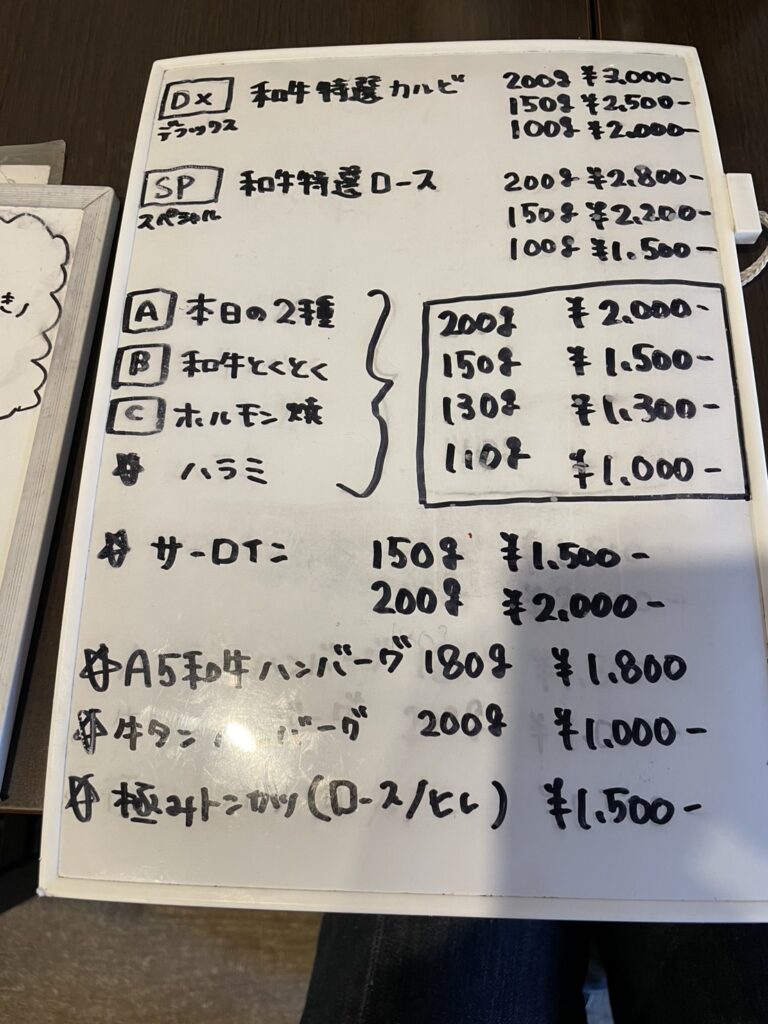 DX 和牛特選カルビ 200g ¥3,000-
デラックス 150g ¥2,500-
100g ¥2,000-
SP 和牛特選ロース 200g ¥2,800-
スペシャル 150g ¥2,200-
100g ¥1,500-
A 本日の2種
B 和牛とくとく
C ホルモン焼
☆ ハラミ
200g ¥2,000-
150g ¥1,500-
130g ¥1,300-
110g ¥1,000-
☆ サーロイン 150g ¥1,500-
200g ¥2,000-
☆A5和牛ハンバーグ 180g ¥1,800
☆牛タンハンバーグ 200g ¥1,000-
☆極みトンカツ(ロース/ヒレ) ¥1,500-